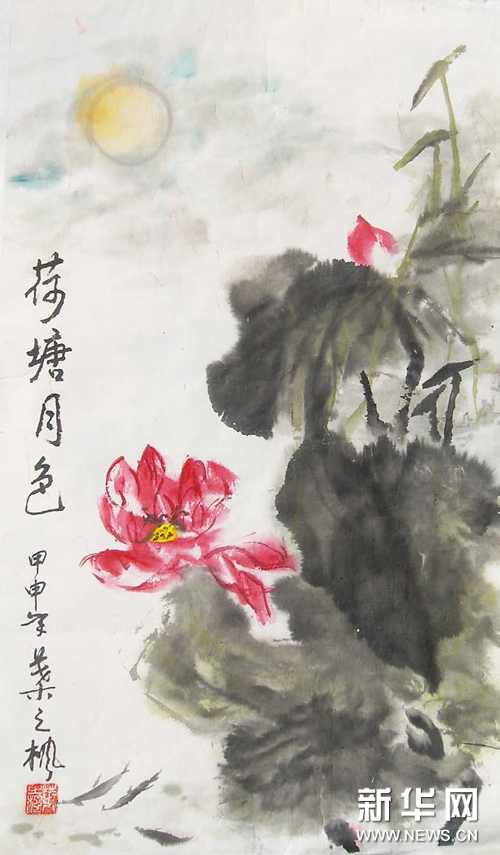 荷塘月色
甲申年 葉之楓
新华网
WWW.NEWS.CN